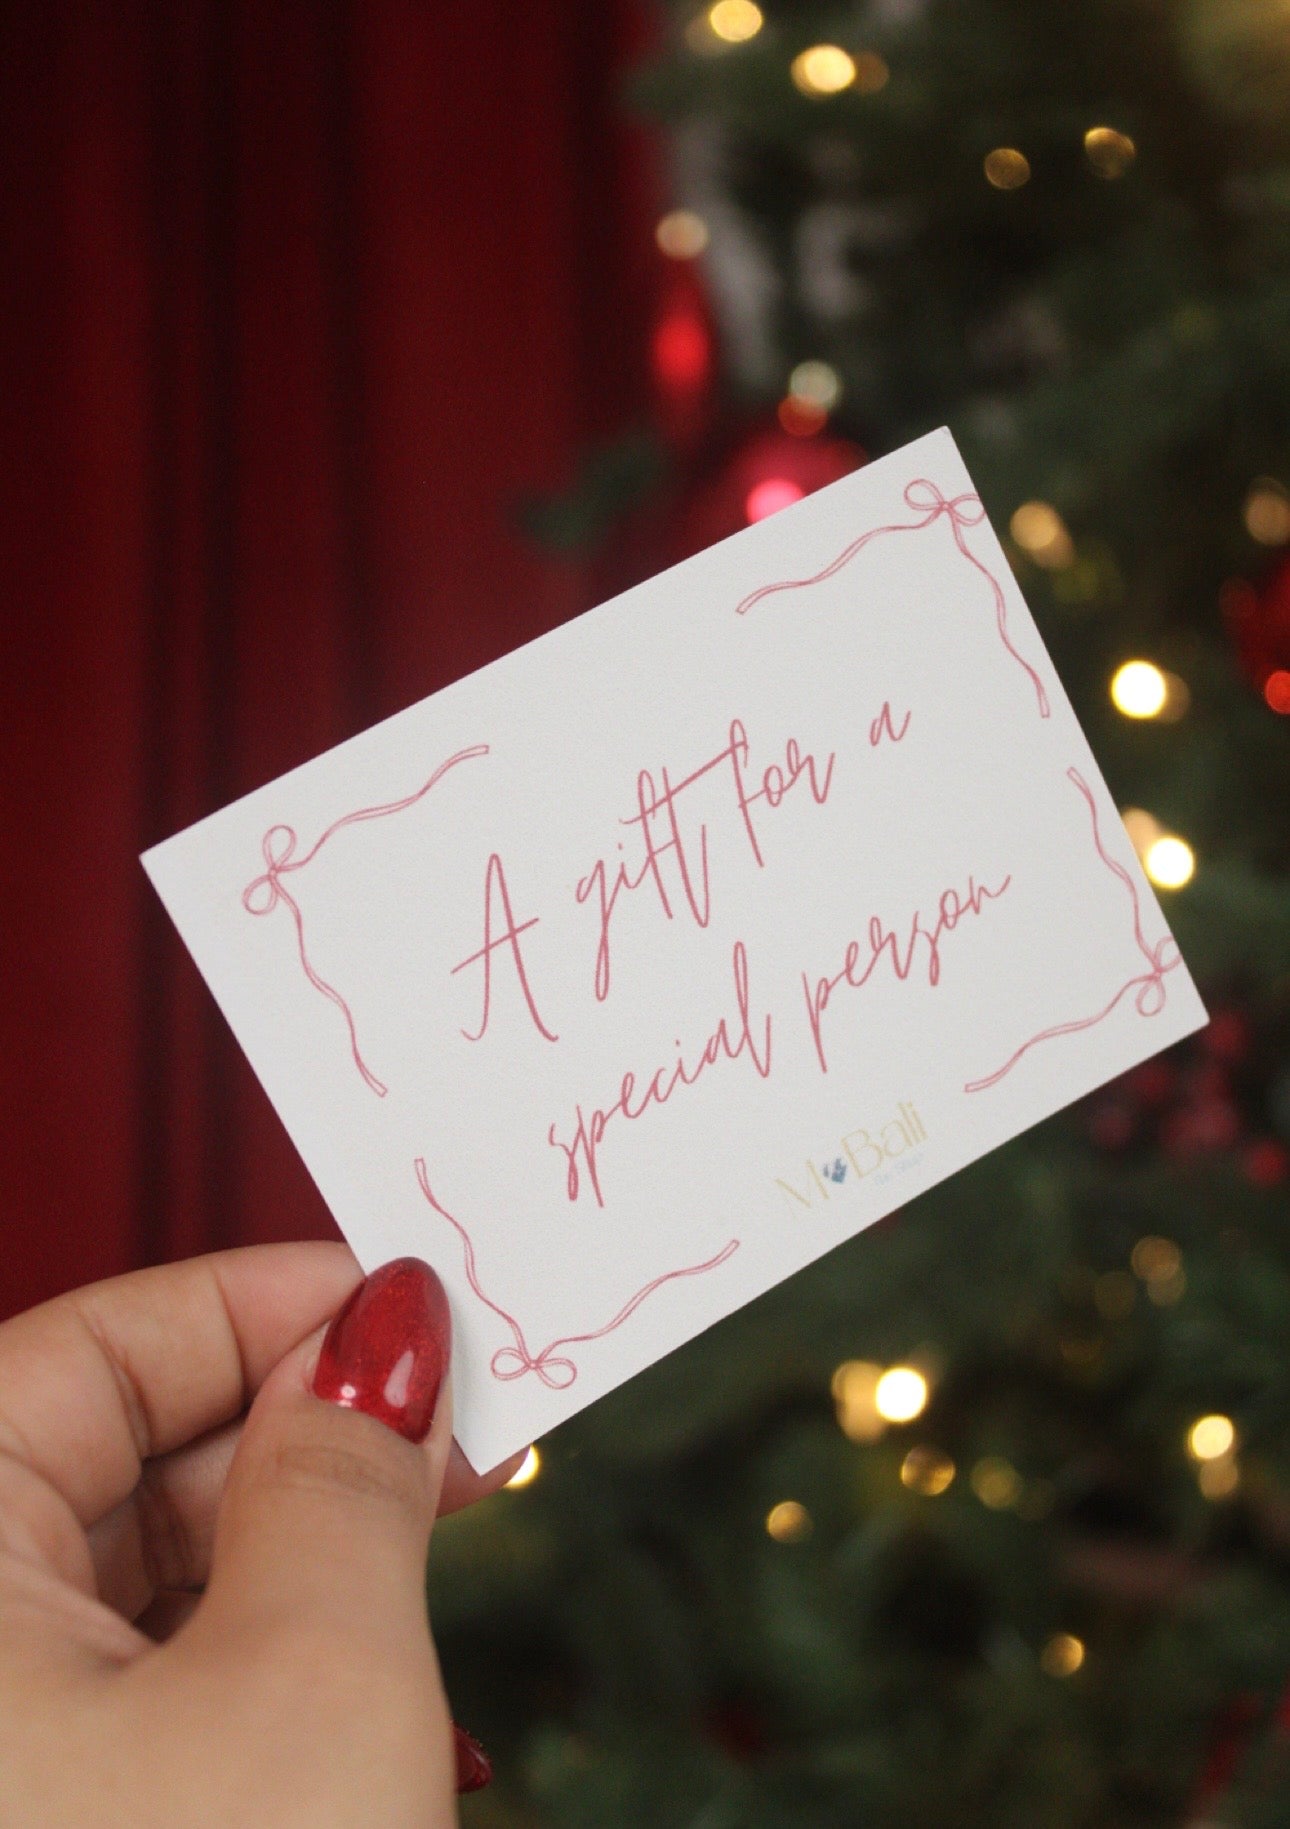 A gift for a
special person
MoBali